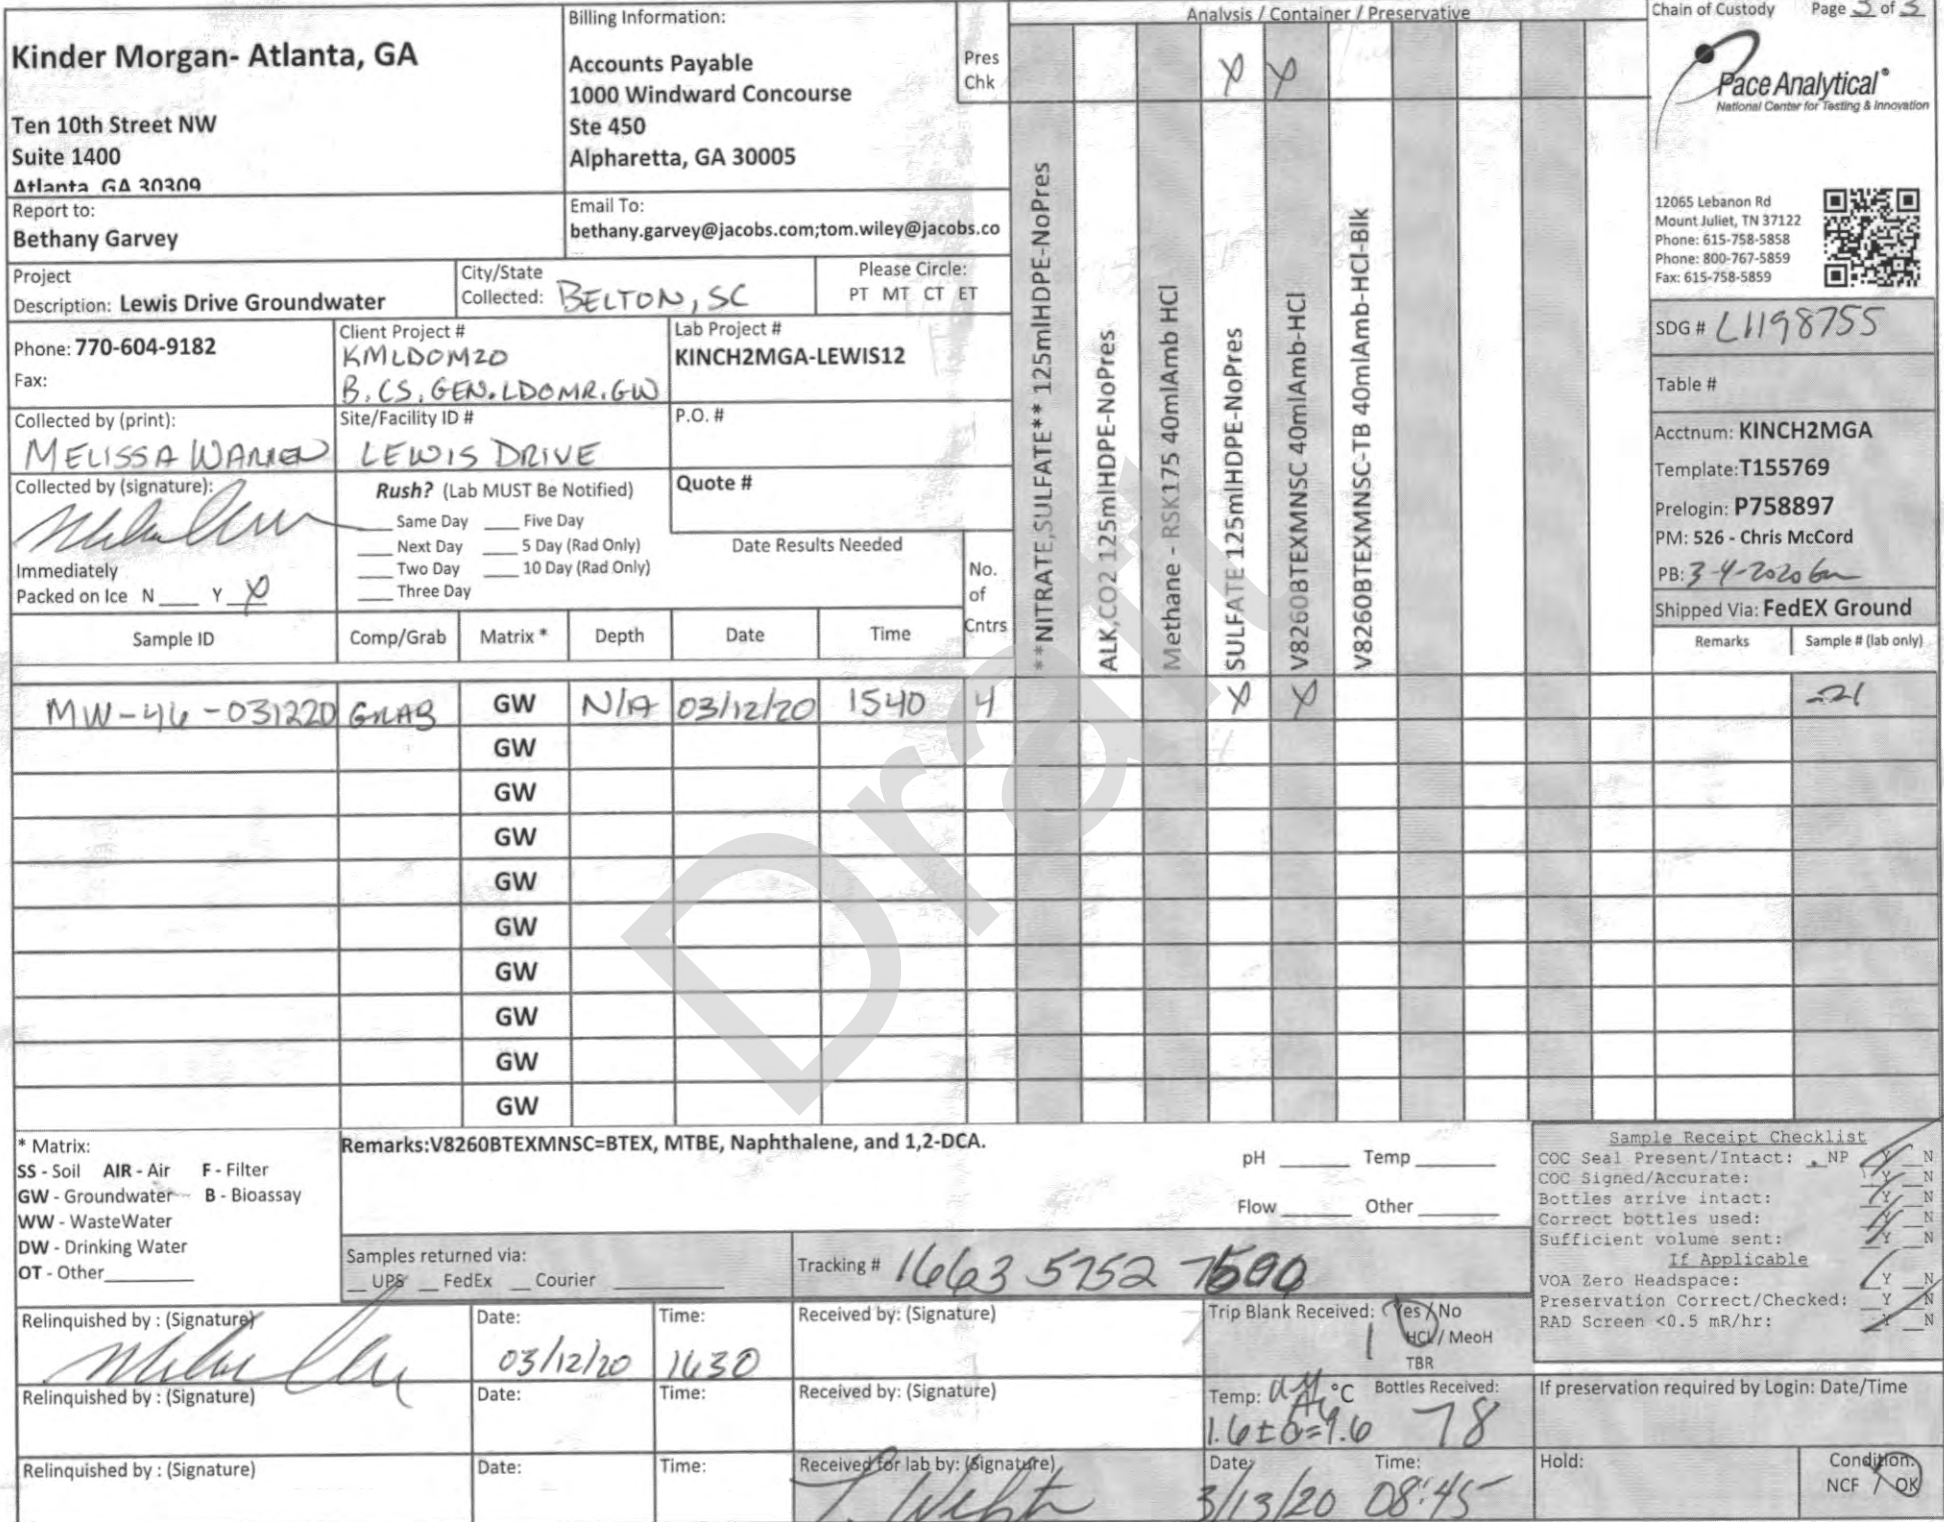 Kinder Morgan- Atlanta, GA
Ten 10th Street NW
Suite 1400
Atlanta, GA 30309
Billing Information:
Accounts Payable
1000 Windward Concourse
Ste 450
Alpharetta, GA 30005
Pres
Chk
Analysis / Container / Preservative
X X
Chain of Custody Page 3 of 3
Pace Analytical®
National Center for Testing & Innovation
12065 Lebanon Rd
Mount Juliet, TN 37122
Phone: 615-758-5858
Phone: 800-767-5859
Fax: 615-758-5859
Report to:
Bethany Garvey
Email To:
bethany.garvey@jacobs.com;tom.wiley@jacobs.co
Project
Description: Lewis Drive Groundwater
City/State
Collected: BELTON, SC
Please Circle:
PT MT CT ET
Phone: 770-604-9182
Fax:
Client Project #
KMLDOM20
B.CS.GEN.LDOMR.GW
Lab Project #
KINCH2MGA-LEWIS12
Collected by (print):
MELISSA WARREN
Site/Facility ID #
LEWIS DRIVE
P.O. #
Collected by (signature):
Rush? (Lab MUST Be Notified)
Same Day Five Day
Next Day 5 Day (Rad Only)
Two Day 10 Day (Rad Only)
Three Day
Quote #
Date Results Needed
Immediately
Packed on Ice N ___ Y X
No.
of
Cntrs
**NITRATE,SULFATE** 125mlHDPE-NoPres
ALK,CO2 125mlHDPE-NoPres
Methane - RSK175 40mlAmb HCl
SULFATE 125mlHDPE-NoPres
V8260BTEXMNSC 40mlAmb-HCl
V8260BTEXMNSC-TB 40mlAmb-HCl-Blk
SDG # L1198755
Table #
Acctnum: KINCH2MGA
Template: T155769
Prelogin: P758897
PM: 526 - Chris McCord
PB: 3-4-2020
Shipped Via: FedEX Ground
Remarks Sample # (lab only)
Sample ID Comp/Grab Matrix * Depth Date Time
MW-46-031220 GRAB GW N/A 03/12/20 1540 4 X X -21
GW
GW
GW
GW
GW
GW
GW
GW
GW
Draft
* Matrix:
SS - Soil AIR - Air F - Filter
GW - Groundwater B - Bioassay
WW - WasteWater
DW - Drinking Water
OT - Other
Remarks:V8260BTEXMNSC=BTEX, MTBE, Naphthalene, and 1,2-DCA.
pH ___ Temp ___
Flow ___ Other ___
Samples returned via:
__ UPS __ FedEx __ Courier
Tracking # 1663 5752 7500
Sample Receipt Checklist
COC Seal Present/Intact: _ NP Y N
COC Signed/Accurate: Y N
Bottles arrive intact: Y N
Correct bottles used: Y N
Sufficient volume sent: Y N
If Applicable
VOA Zero Headspace: Y N
Preservation Correct/Checked: Y N
RAD Screen <0.5 mR/hr: Y N
Relinquished by : (Signature)
Date:
03/12/20
Time:
1630
Received by: (Signature)
Trip Blank Received: Yes / No
1
HCL / MeoH
TBR
Relinquished by : (Signature)
Date:
Time:
Received by: (Signature)
Temp: °C Bottles Received:
1.6±0=1.6 78
If preservation required by Login: Date/Time
Relinquished by : (Signature)
Date:
Time:
Received for lab by: (Signature)
Date: Time:
3/13/20 08:45
Hold:
Condition:
NCF / OK